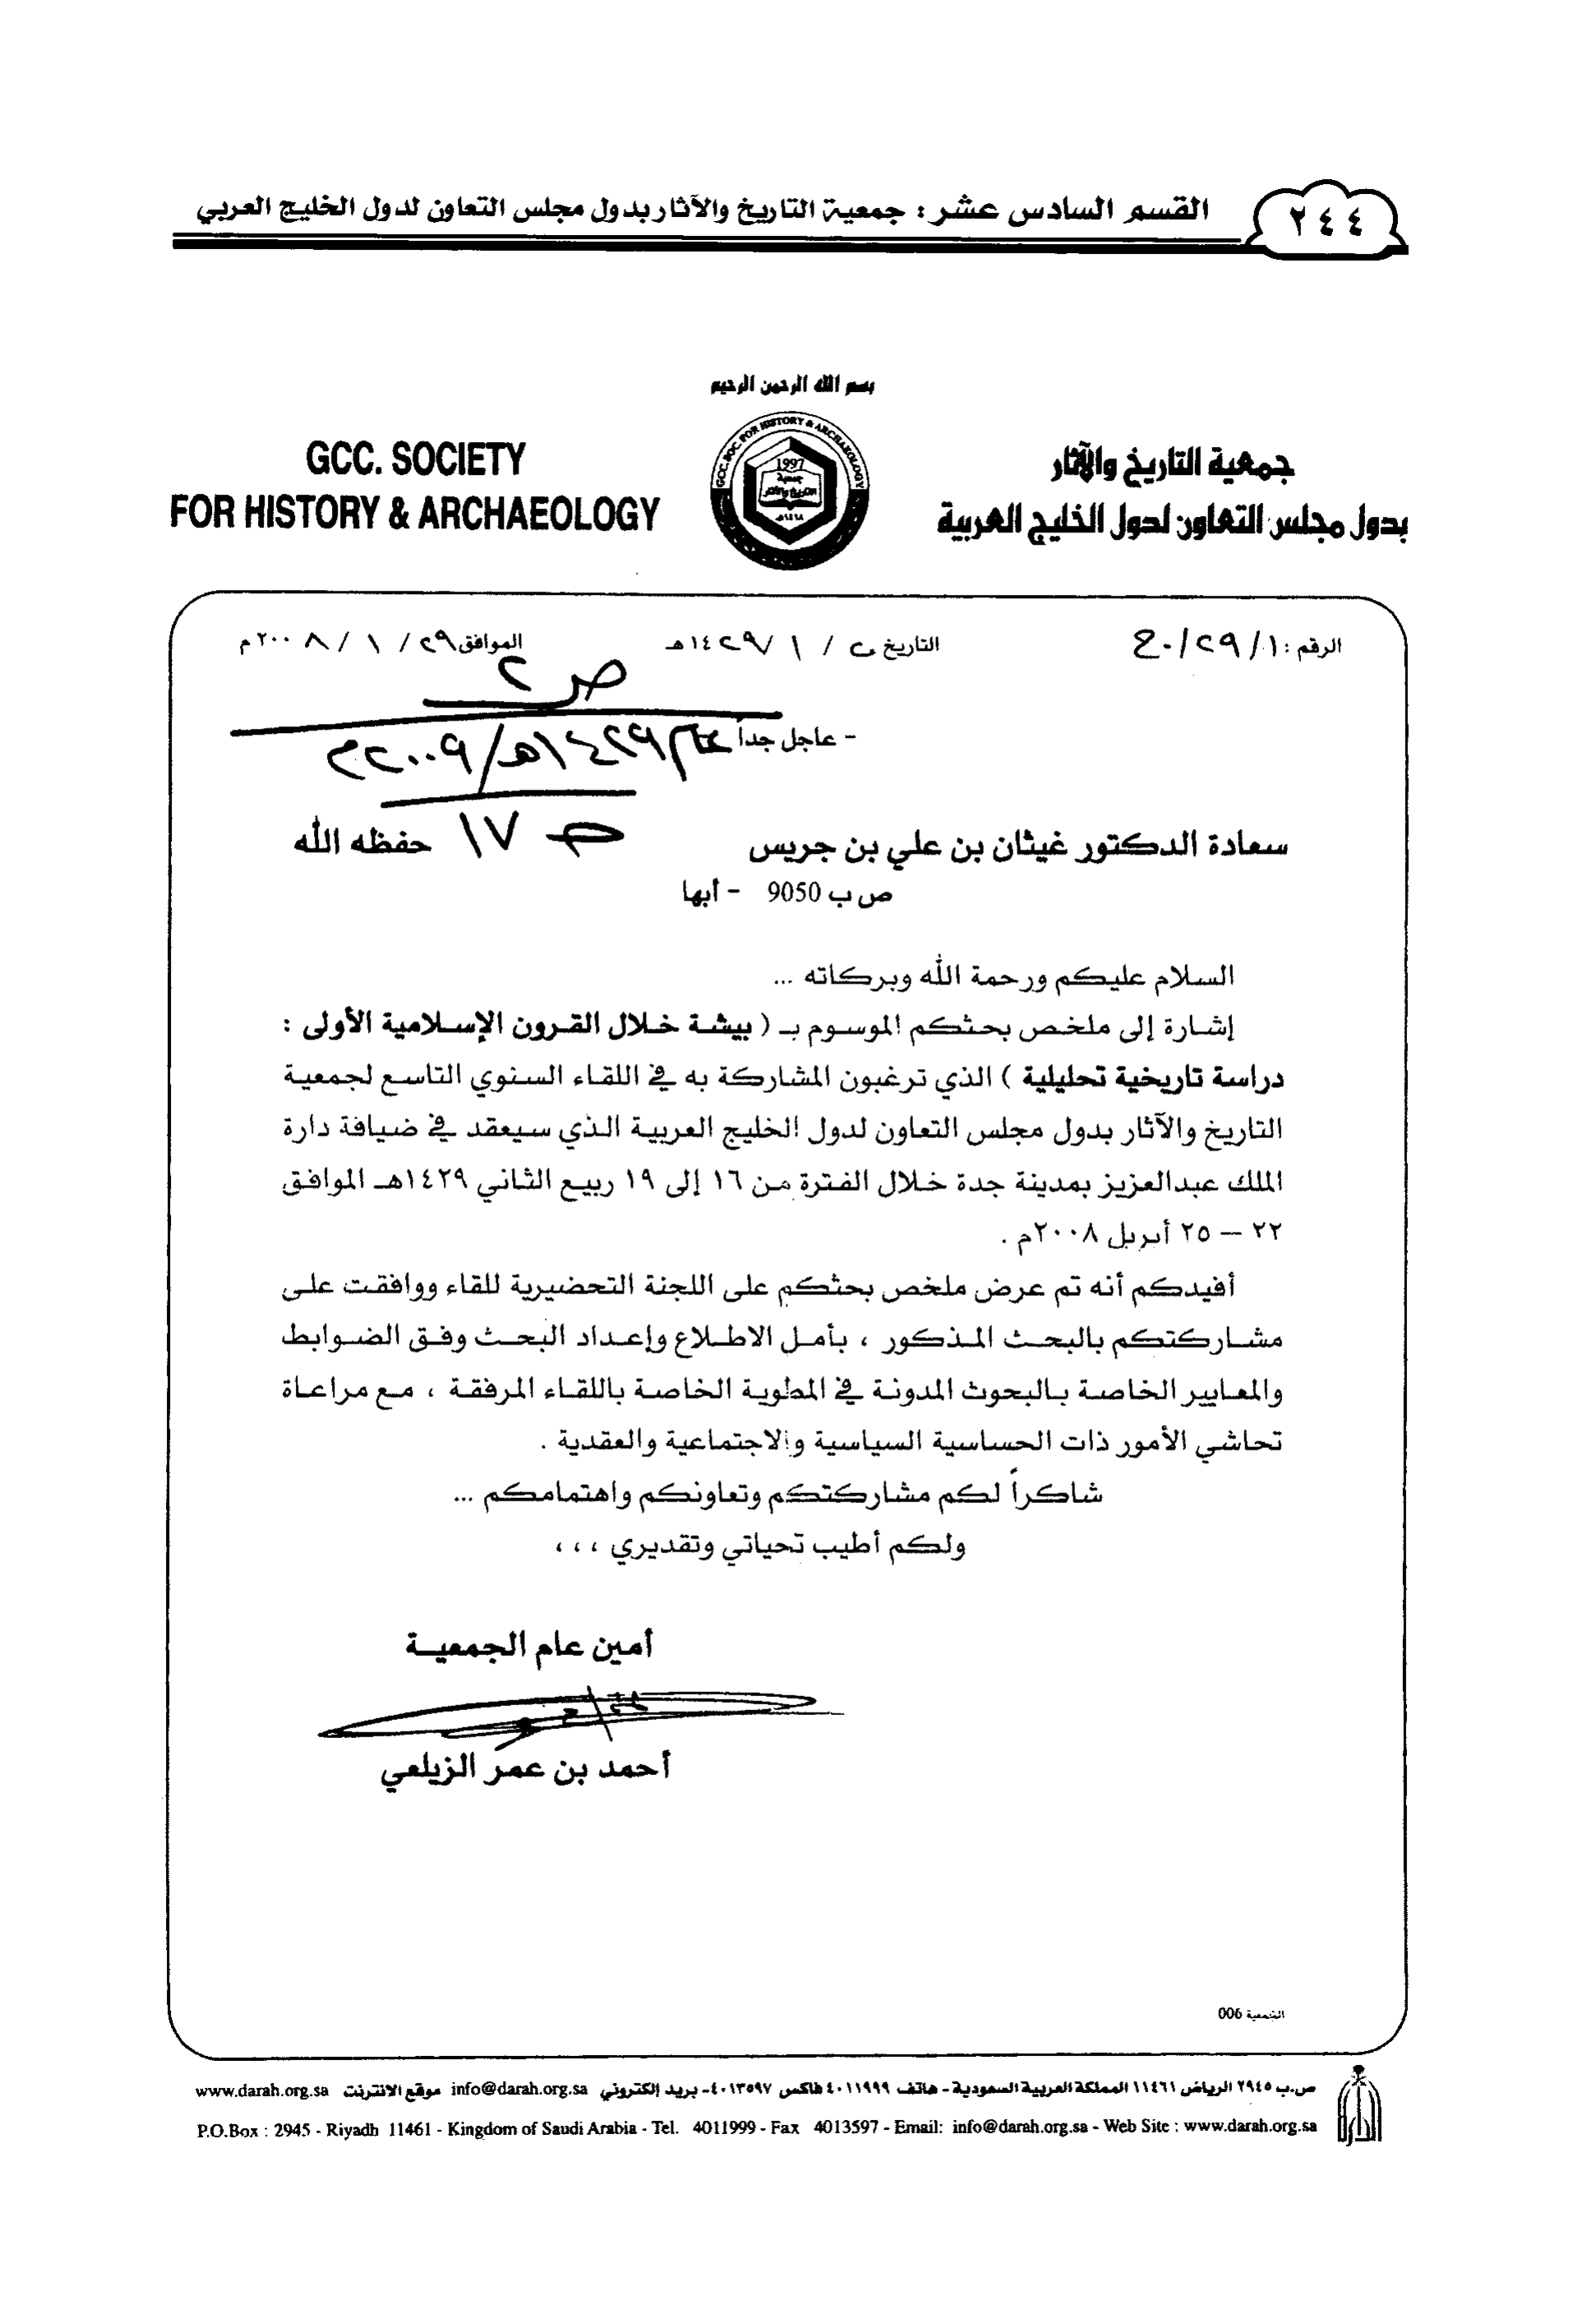 ٢٤٤
القسم السادس عشر : جمعية التاريخ والآثار بدول مجلس التعاون لدول الخليج العربي
بسم الله الرحمن الرحيم
جمعية التاريخ والآثار
بدول مجلس التعاون لدول الخليج العربية
GCC. SOCIETY
FOR HISTORY & ARCHAEOLOGY
GCC. SOC. FOR HISTORY & ARCHAEOLOGY
1997
الرقم : ١/٢٩/
التاريخ / ١ /١٤٢٩هـ
الموافق ٢٩/ ١ / ٢٠٠٨م
ص ٢
- عاجل جداً
عام ١٤٢٩هـ/٢٠٠٩م
سعادة الدكتور غيثان بن علي بن جريس
١٧
حفظه الله
ص ب 9050 - أبها
السلام عليكم ورحمة الله وبركاته ...
إشارة إلى ملخص بحثكم الموسوم بـ ( بيشة خلال القرون الإسلامية الأولى :
دراسة تاريخية تحليلية ) الذي ترغبون المشاركة به في اللقاء السنوي التاسع لجمعية
التاريخ والآثار بدول مجلس التعاون لدول الخليج العربية الذي سيعقد في ضيافة دارة
الملك عبدالعزيز بمدينة جدة خلال الفترة من ١٦ إلى ١٩ ربيع الثاني ١٤٢٩هـ الموافق
٢٢ – ٢٥ أبريل ٢٠٠٨م .
أفيدكم أنه تم عرض ملخص بحثكم على اللجنة التحضيرية للقاء ووافقت على
مشاركتكم بالبحث المذكور ، بأمل الاطلاع وإعداد البحث وفق الضوابط
والمعايير الخاصة بالبحوث المدونة في المطوية الخاصة باللقاء المرفقة ، مع مراعاة
تحاشي الأمور ذات الحساسية السياسية والاجتماعية والعقدية .
شاكراً لكم مشاركتكم وتعاونكم واهتمامكم ...
ولكم أطيب تحياتي وتقديري ،،،
أمين عام الجمعية
أحمد بن عمر الزيلعي
الجمعية 006
ص.ب ٢٩٤٥ الرياض ١١٤٦١ المملكة العربية السعودية - هاتف ٤٠١١٩٩٩ فاكس ٤٠١٣٥٩٧- بريد إلكتروني info@darah.org.sa موقع الانترنت www.darah.org.sa
P.O.Box : 2945 - Riyadh 11461 - Kingdom of Saudi Arabia - Tel. 4011999 - Fax 4013597 - Email: info@darah.org.sa - Web Site : www.darah.org.sa